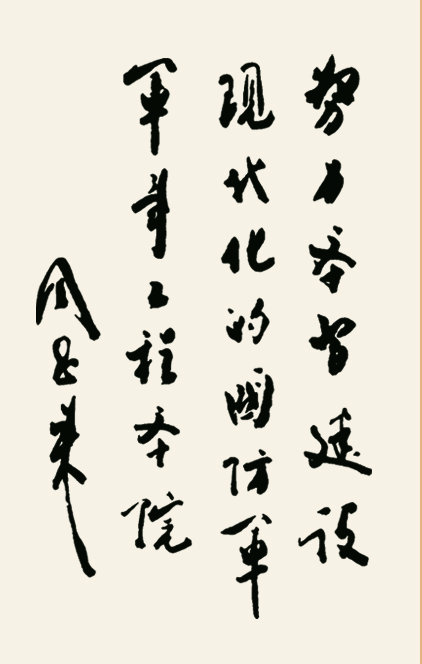 努力学習建設
現代化的國防軍
軍事工程学院
周恩来